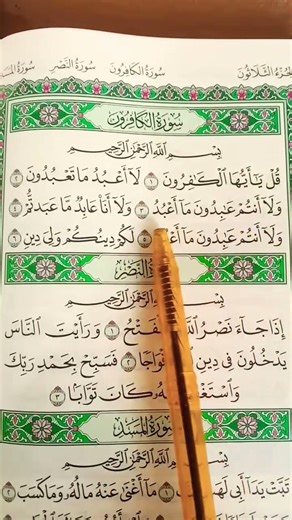 الجزء الثلاثون سورة الكافرون سورة النصر سورة المسد
سورة الكافرون
بِسْمِ اللَّهِ الرَّحْمَٰنِ الرَّحِيمِ
قُلْ يَٰٓأَيُّهَا ٱلْكَٰفِرُونَ ١ لَآ أَعْبُدُ مَا تَعْبُدُونَ ٢
وَلَآ أَنتُمْ عَٰبِدُونَ مَآ أَعْبُدُ ٣ وَلَآ أَنَا۠ عَابِدٌ مَّا عَبَدتُّمْ ٤
وَلَآ أَنتُمْ عَٰبِدُونَ مَآ ٥ لَكُمْ دِينُكُمْ وَلِيَ دِينِ ٦
النصر
بِسْمِ اللَّهِ الرَّحْمَٰنِ الرَّحِيمِ
إِذَا جَآءَ نَصْرُ وَٱلْفَتْحُ ١ وَرَأَيْتَ ٱلنَّاسَ
يَدْخُلُونَ فِي دِينِ ٢ فَسَبِّحْ بِحَمْدِ رَبِّكَ
كَانَ تَوَّابًۢا ٣
سورة المسد
بِسْمِ اللَّهِ الرَّحْمَٰنِ الرَّحِيمِ
تَبَّتْ يَدَآ أَبِي ١ مَآ أَغْنَىٰ عَنْهُ مَالُهُۥ وَمَا كَسَبَ ٢